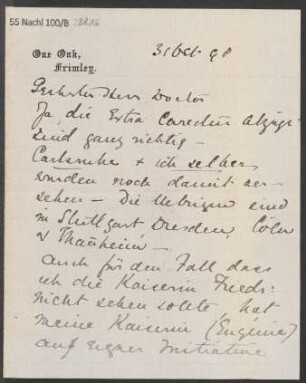 55 Nachl 100/B
One Oak,
Frimley.
31 Oct. 98
Geehrter Herr Doctor
Ja, die Extra Correctur Abzüge
sind ganz richtig –
Carlsruhe + ich selber
wurden noch damit ver-
sehen – Die Uebrigen sind
in Stuttgart Dresden, Cöln
& Manheim –
Auch für den Fall dass
ich die Kaiserin Friedr:
nicht sehen sollte, hat
meine Kaiserin (Eugénie)
auf eigner Initiative